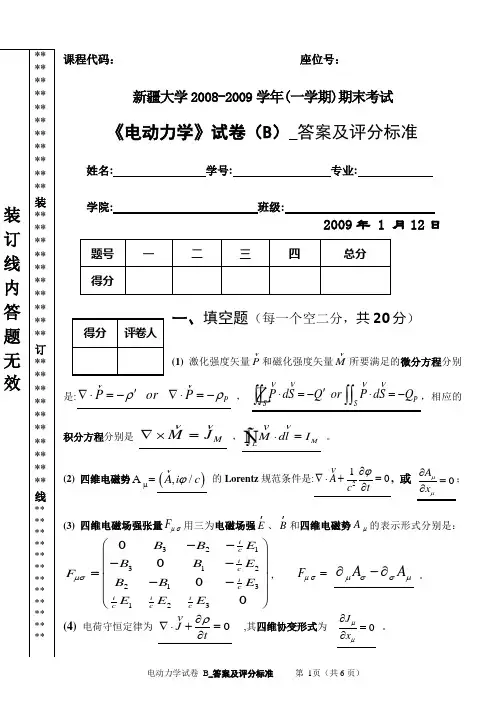 课程代码:                座位号:
新疆大学2008-2009学年(一学期)期末考试
《电动力学》试卷（B）_答案及评分标准
姓名:          学号:          专业:
学院:               班级:
2009年 1 月12日
题号 一 二 三 四 总分
得分
得分 评卷人
一、填空题（每一个空二分，共20分）
(1) 激化强度矢量 P 和磁化强度矢量 M 所要满足的微分方程分别
是: ∇·P = −ρ′ or ∇·P = −ρ_P ， ∯_S P·dS = −Q′ or ∬_S P·dS = −Q_P，相应的
积分方程分别是 ∇×M = J_M ， M·dl = I_M 。
(2) 四维电磁势 A_μ = (A, iφ/c) 的 Lorentz 规范条件是: ∇·A + 1/c² ∂φ/∂t = 0，或 ∂A_μ/∂x_μ = 0；
(3) 四维电磁场强张量 F_μσ 用三为电磁场强 E、B 和四维电磁势 A_μ 的表示形式分别是:
0 B₃ −B₂ −(i/c)E₁
−B₃ 0 B₁ −(i/c)E₂
F_μσ = B₂ −B₁ 0 −(i/c)E₃ ， F_μσ = ∂_μ A_σ − ∂_σ A_μ 。
(i/c)E₁ (i/c)E₂ (i/c)E₃ 0
(4) 电荷守恒定律为 ∇·J + ∂ρ/∂t = 0 ,其四维协变形式为 ∂J_μ/∂x_μ = 0 。
装订线内答题无效
**
**
**
**
**
**
**
**
**
**
装
**
**
**
**
**
**
**
**
订
**
**
**
**
**
**
**
**
线
**
**
**
**
**
**
**
**
电动力学试卷 B_答案及评分标准     第 1页（共 6 页）